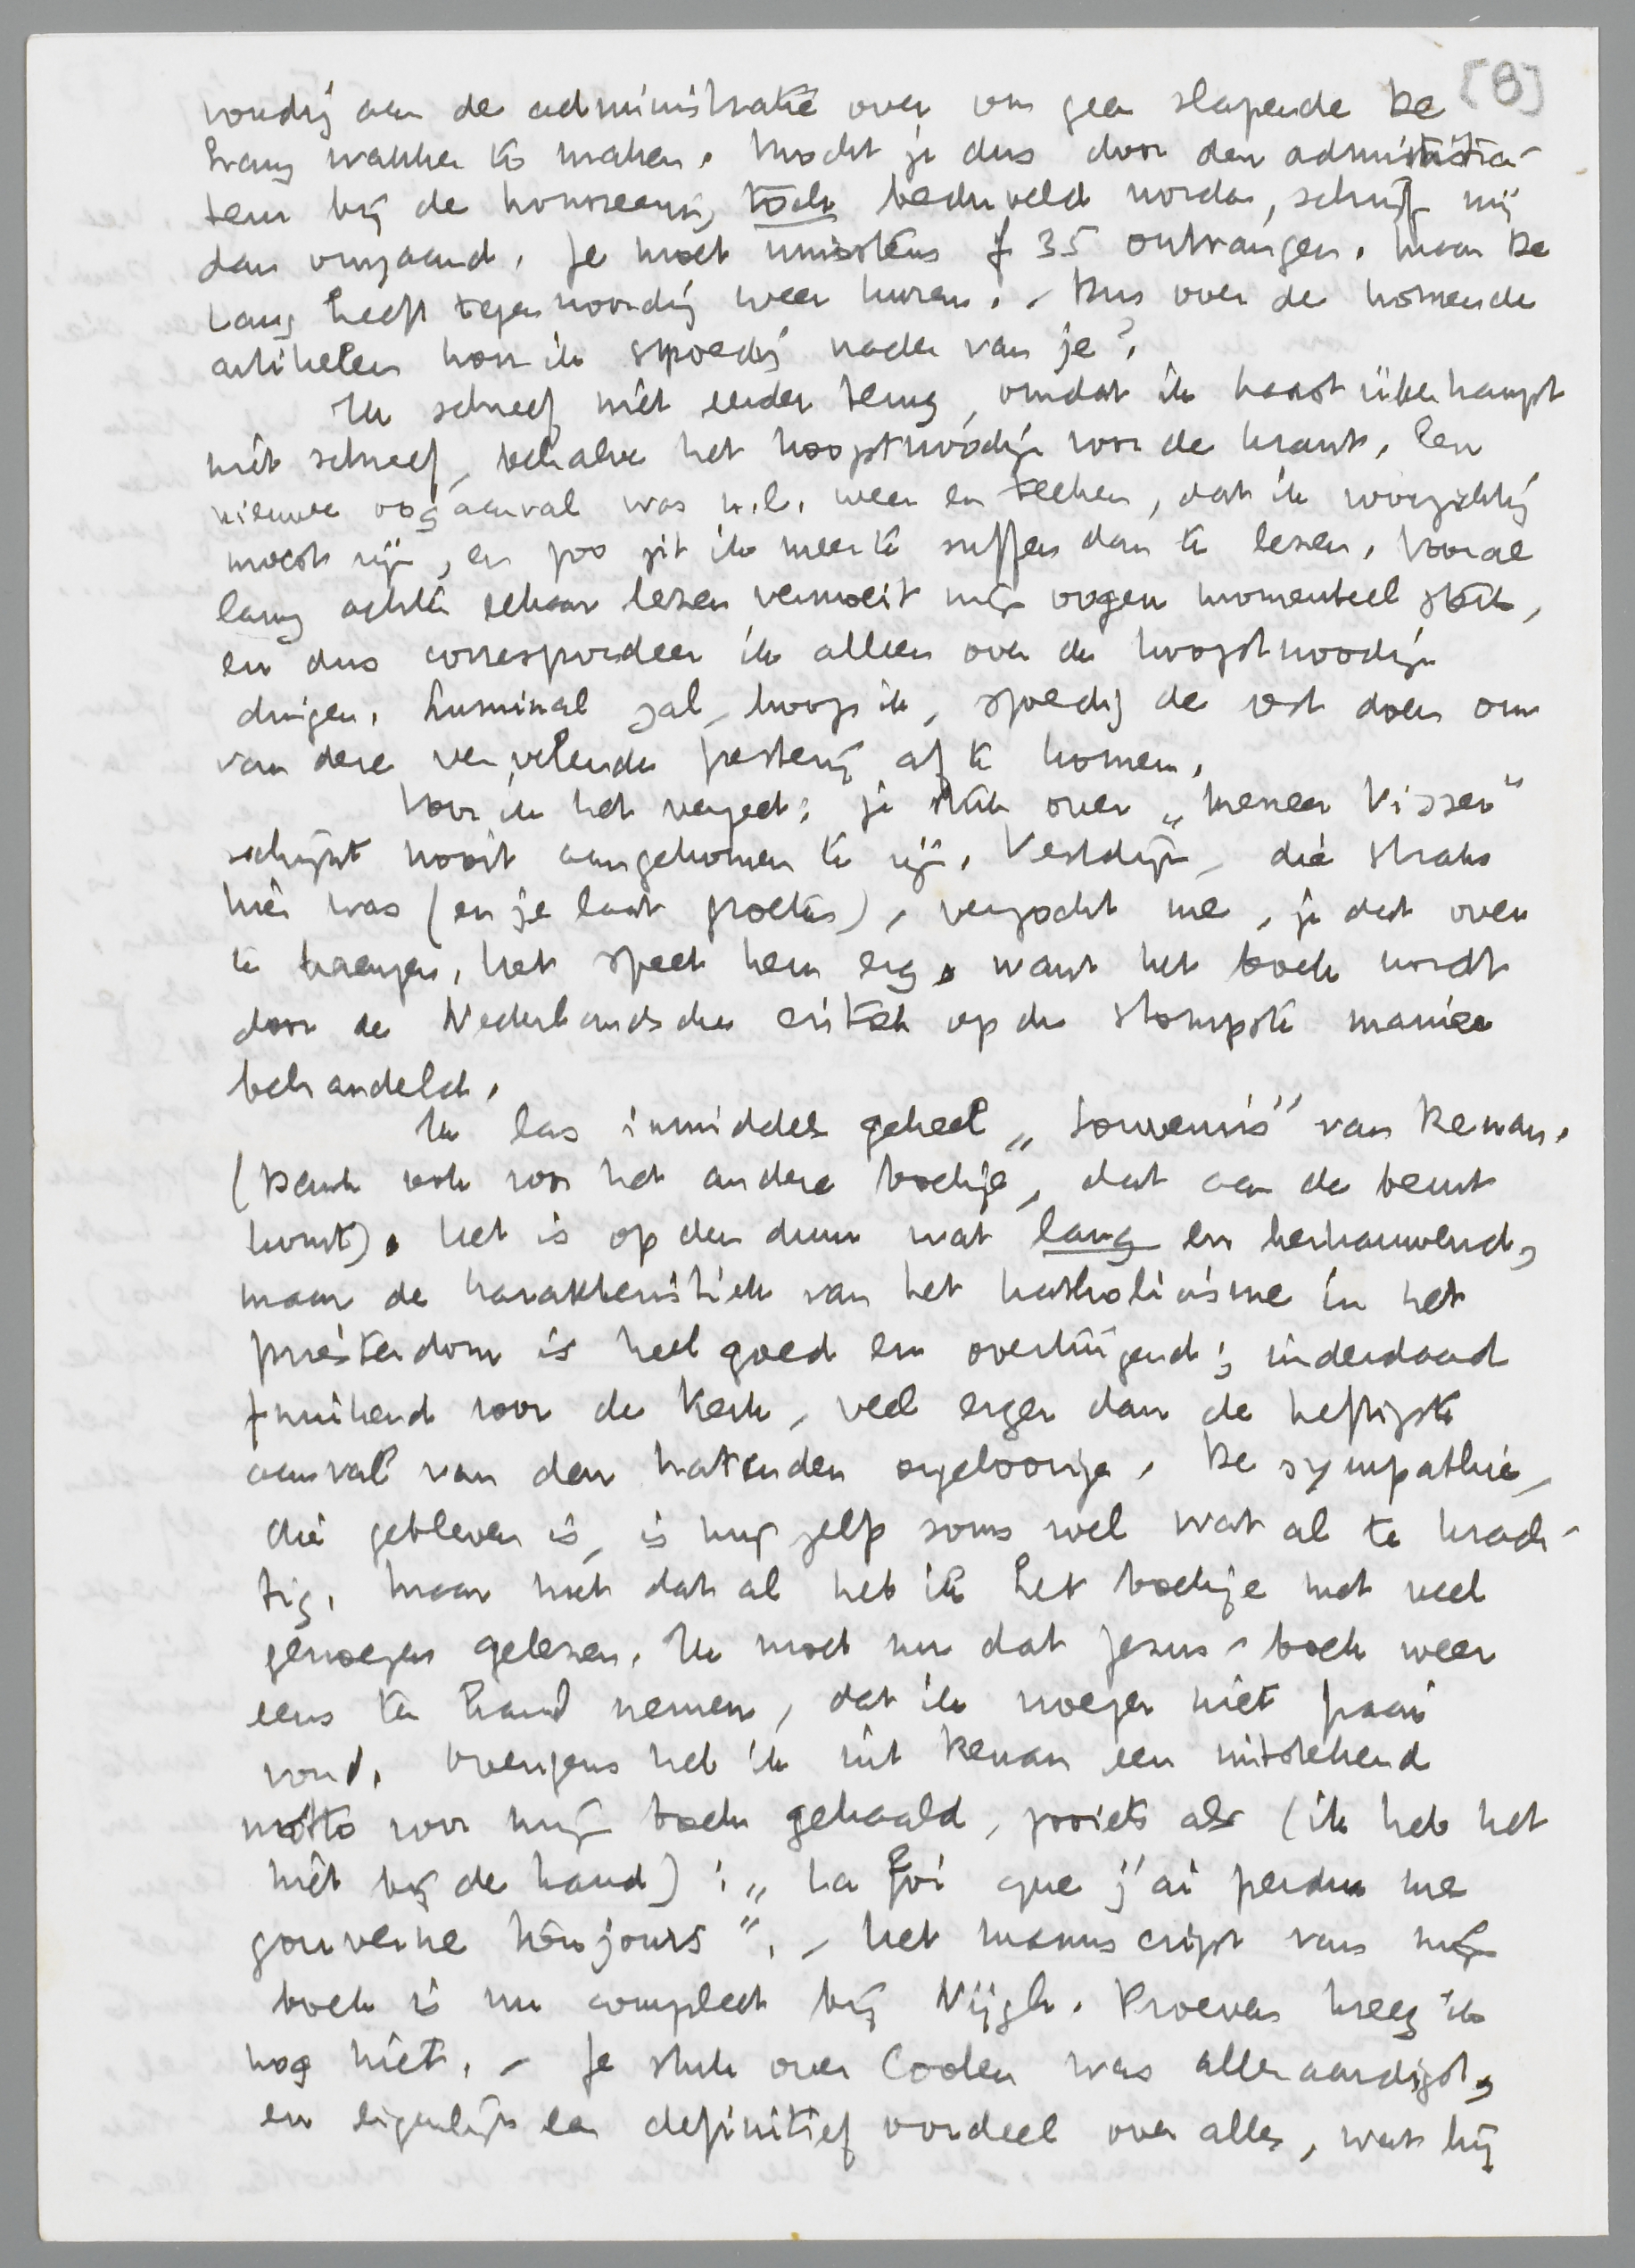 [8]
voudig aan de administratie over om geen slapende De
Lang wakker te maken. Mocht je dus door den administra-
teur bij de honoreering toch bedonderd worden, schrijf mij
dan omgaand. Je moet minstens f 35 ontvangen. Maar De
Lang heeft tegenwoordig weer kuren. - Dus over de komende
artikelen hoor ik spoedig nader van je?
Ik schreef niet eerder terug, omdat ik haast überhaupt
niet schreef, behalve het hoogstnoodige voor de krant. Een
nieuwe oogaanval was n.l. weer en teeken, dat ik voorzichtig
moest zijn, en zoo zit ik meer te suffen dan te lezen. Vooral
lang achter elkaar lezen vermoeit mijn oogen momenteel sterk,
en dus correspondeer ik alleen over de hoogstnoodige
dingen. Luminal zal, hoop ik, spoedig de rest doen om
van deze vervelende pesterij af te komen.
Voor ik het vergeet: je stuk over „Meneer Visser"
schijnt nooit aangekomen te zijn. Vestdijk, die straks
hier was (en je laat groeten), verzocht me, je dat over
te brengen. Het speet hem erg, want het boek wordt
door de Nederlandsche critiek op de stompste manier
behandeld.
Ik las inmiddels geheel „Souvenirs" van Renan.
(Dank ook voor het andere boekje, dat aan de beurt
komt). Het is op den duur wat lang en herkauwend,
maar de karakteristiek van het katholicisme in het
priesterdom is heel goed en overtuigend; inderdaad
fnuikend voor de Kerk, veel erger dan de heftigste
aanval van den hatenden ongeloovige. De sympathie,
die gebleven is, is mij zelf soms wel wat al te krach-
tig. Maar met dat al heb ik het boekje met veel
genoegen gelezen. Ik moet nu dat Jezus-boek weer
eens ter hand nemen, dat ik vroeger niet fraai
vond. Overigens heb ik uit Renan een uitstekend
motto voor mijn boek gehaald, zooiets als (ik heb het
niet bij de hand): „La foi que j'ai perdu me
gouverne toujours". - Het manuscript van mijn
boek is nu compleet bij Nijgh. Proeven kreeg ik
nog niet. - Je stuk over Coolen was alleraardigst,
en eigenlijk een definitief oordeel over alles, wat hij